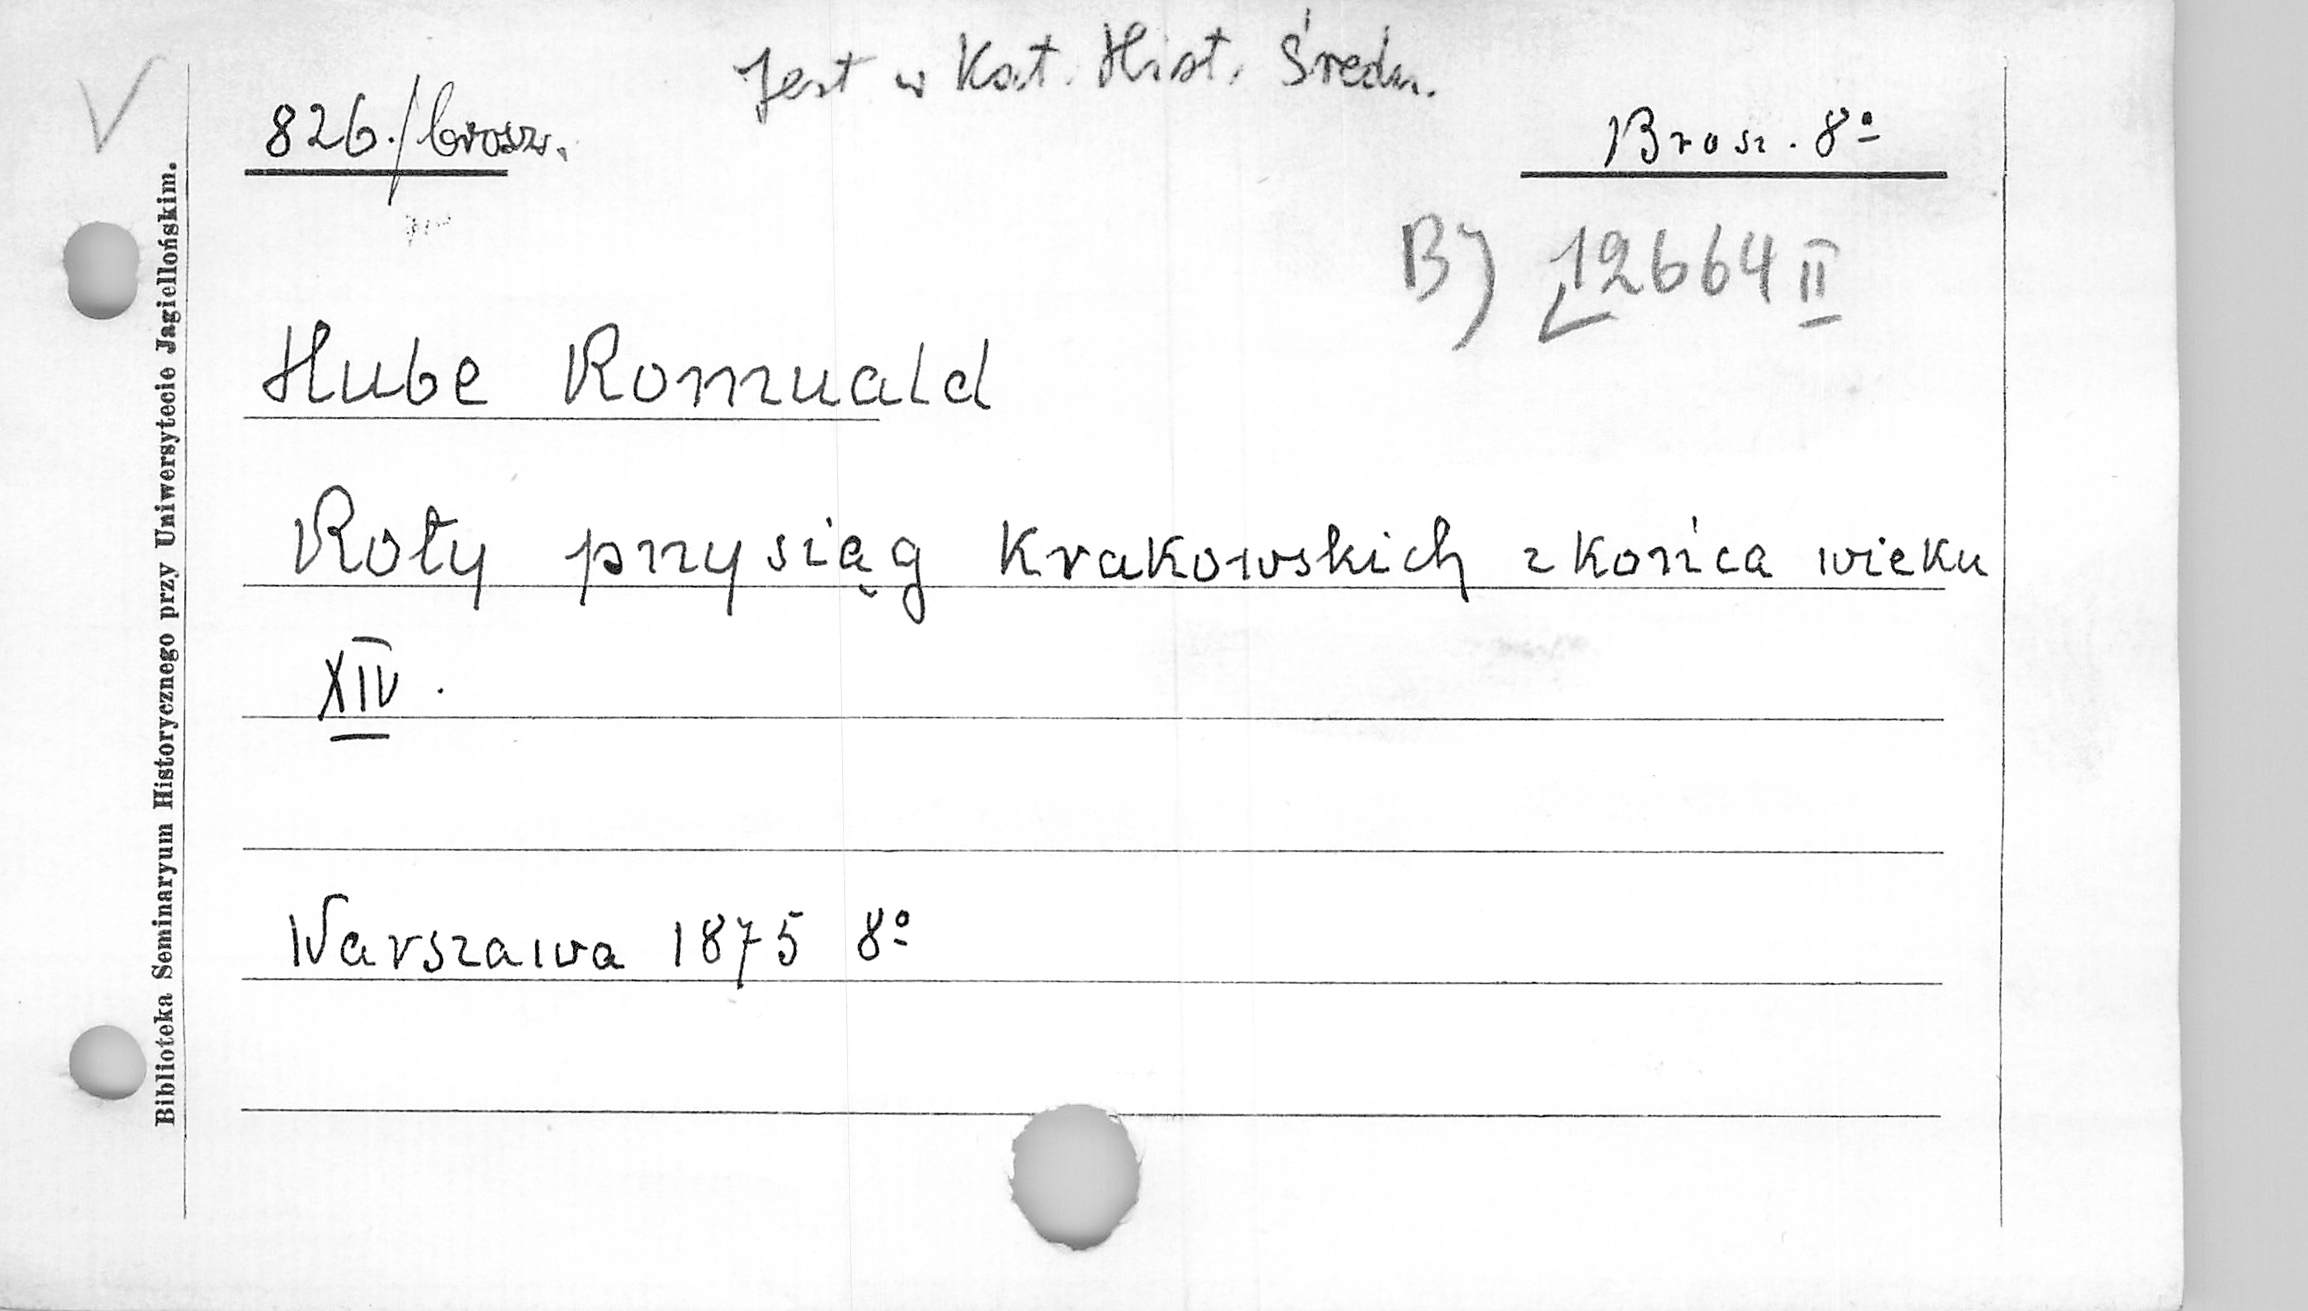 Jest w Kat. Hist. Średn.
826./brosz.
Brosz. 8º
B) 12664 II
Hube Romuald
Roty przysiąg Krakowskich z końca wieku
XIV.
Warszawa 1875 8º
Biblioteka Seminaryum Historycznego przy Uniwersytecie Jagiellońskim.